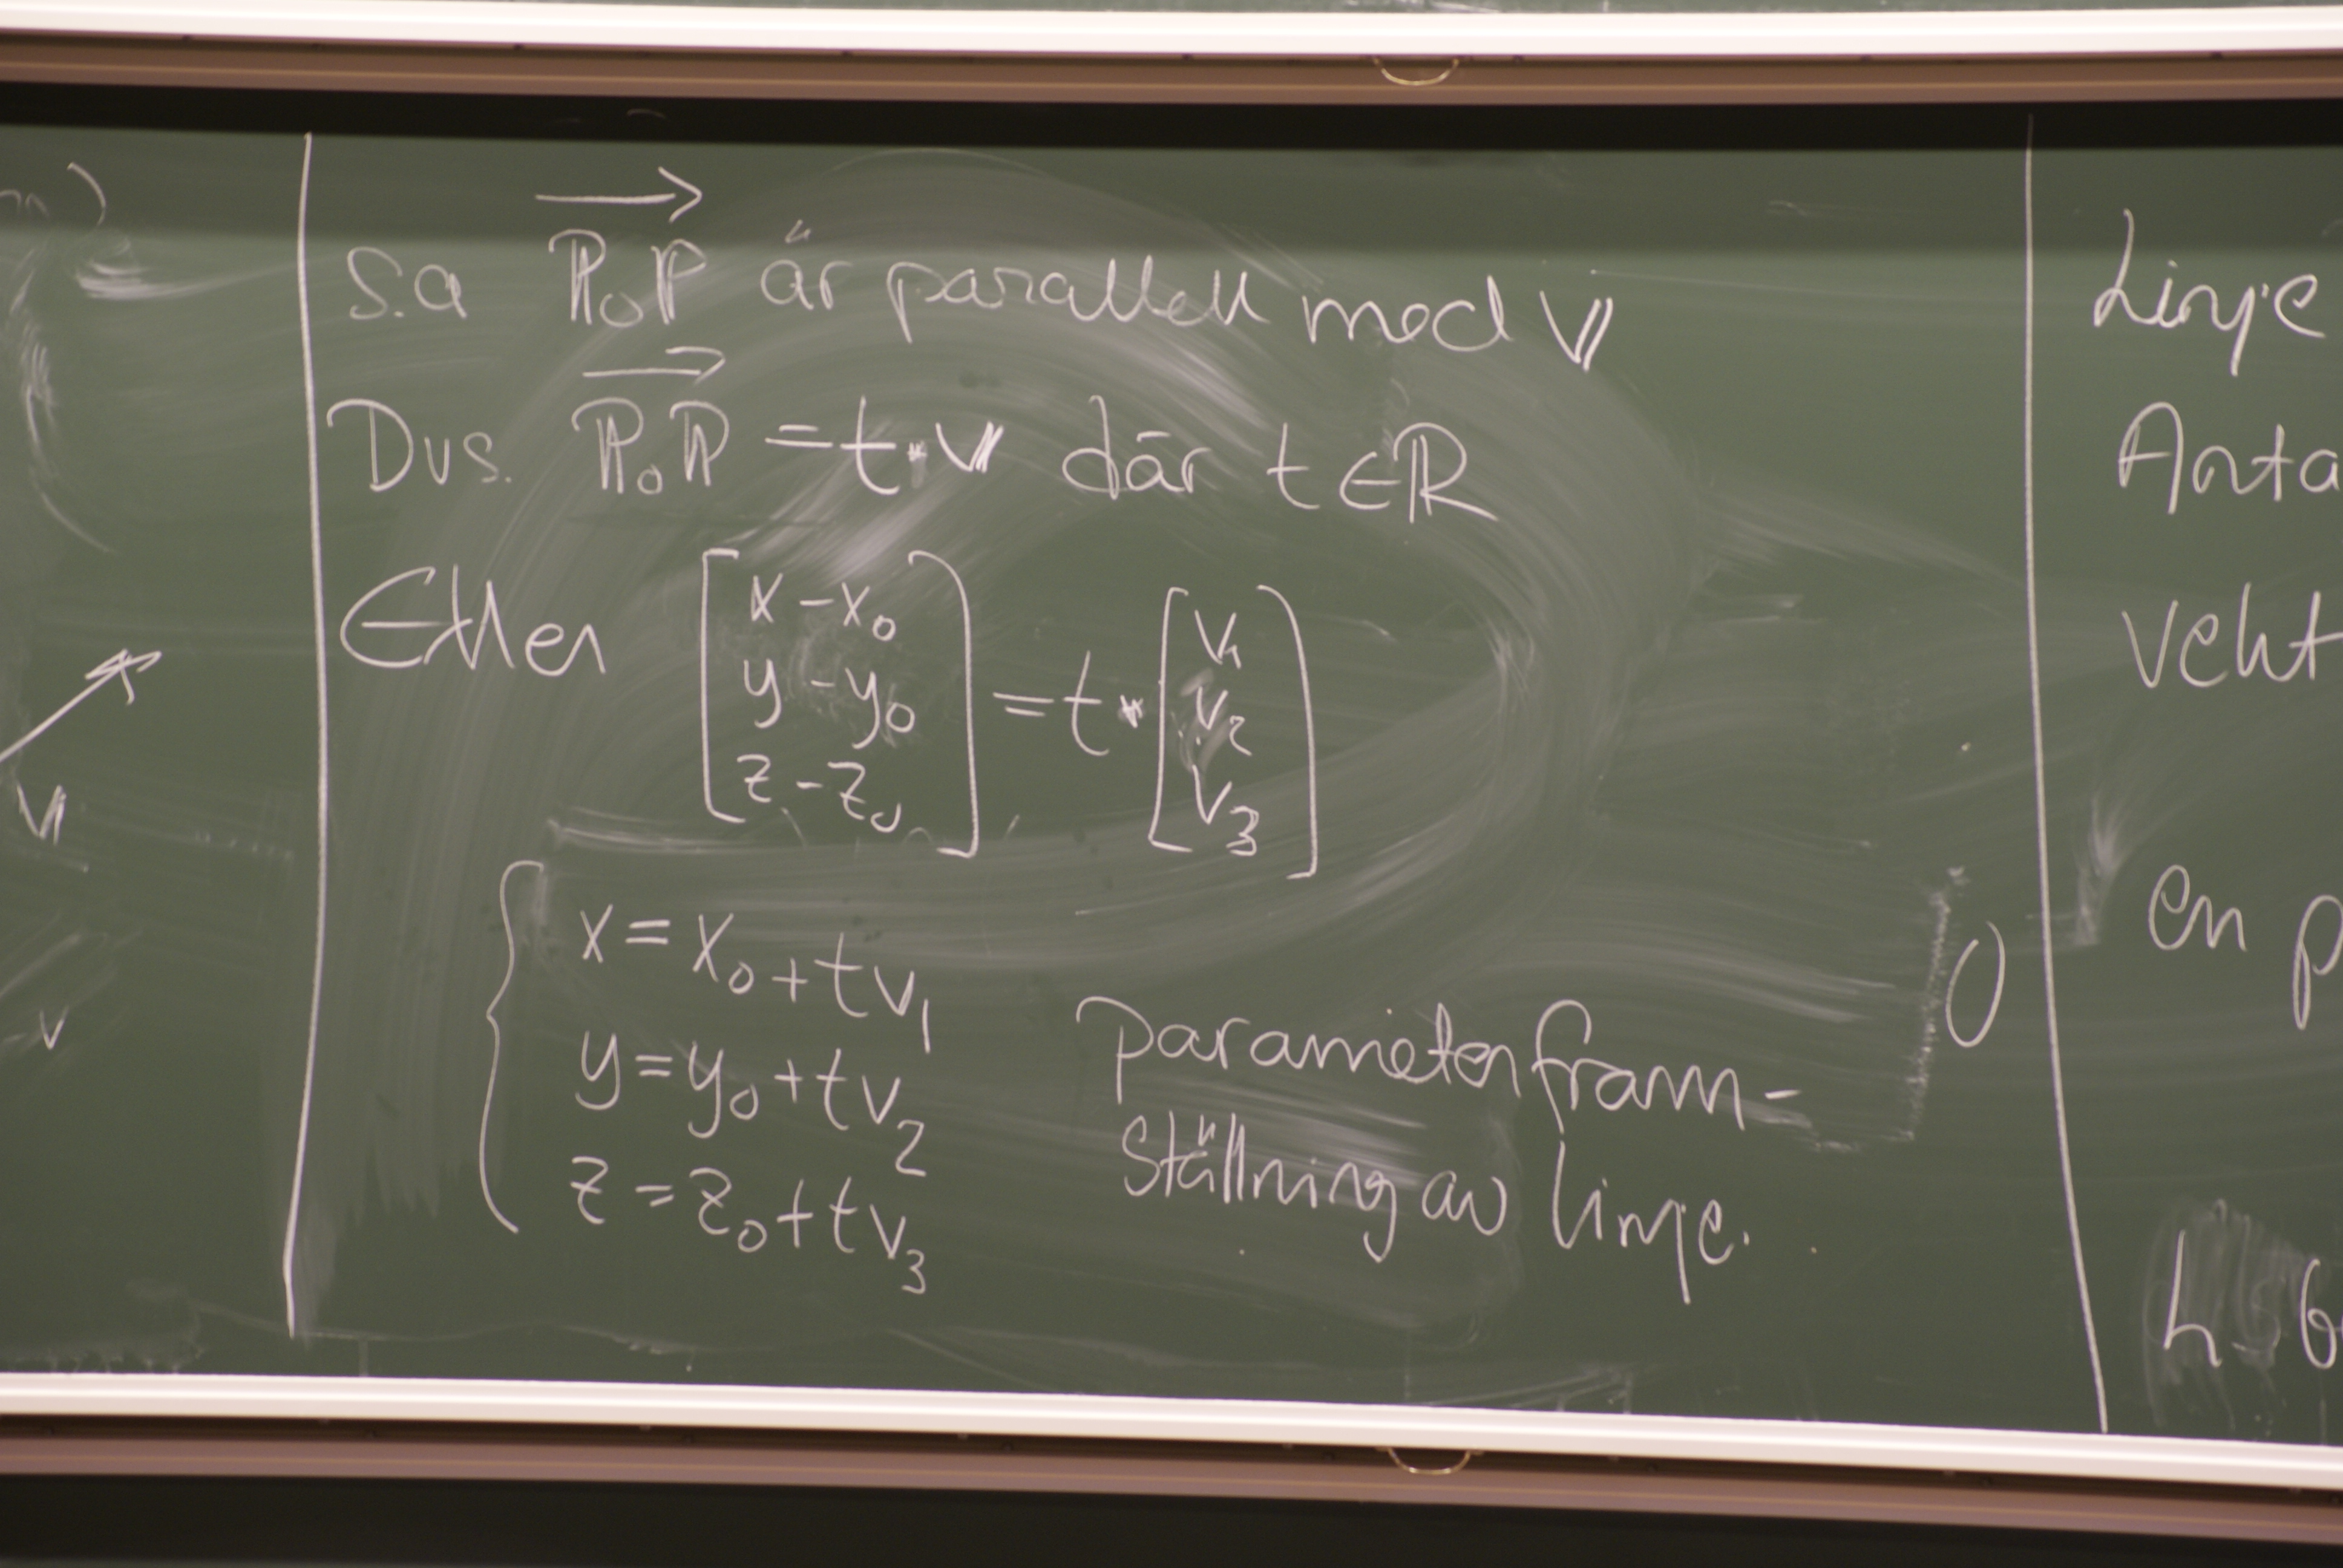 v
v
S.a P₀P är parallell med v
Dvs. P₀P = t·v där t ∈ ℝ
Eller [x - x₀, y - y₀, z - z₀] = t·[v₁, v₂, v₃]
x = x₀ + tv₁
y = y₀ + tv₂
z = z₀ + tv₃
Parameterfram-
ställning av linje.
Linje
Anta
vekt
en p